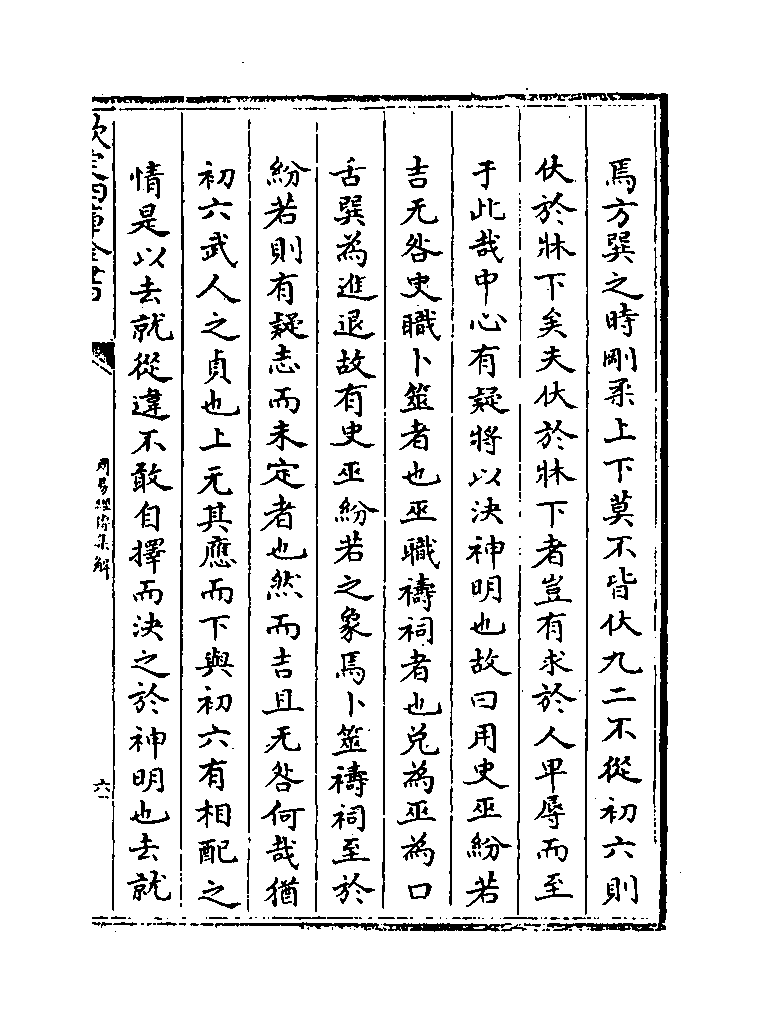 焉方巽之時剛柔上下莫不皆伏九二不從初六則
伏於牀下矣夫伏於牀下者豈有求於人卑辱而至
于此哉中心有疑將以決神明也故曰用史巫紛若
吉无咎史職卜筮者也巫職禱祠者也兌為巫為口
舌巽為進退故有史巫紛若之象焉卜筮禱祠至於
紛若則有疑志而未定者也然而吉且无咎何哉猶
初六武人之貞也上无其應而下與初六有相配之
情是以去就從違不敢自擇而決之於神明也去就
欽定四庫全書
周易經傳集解
六